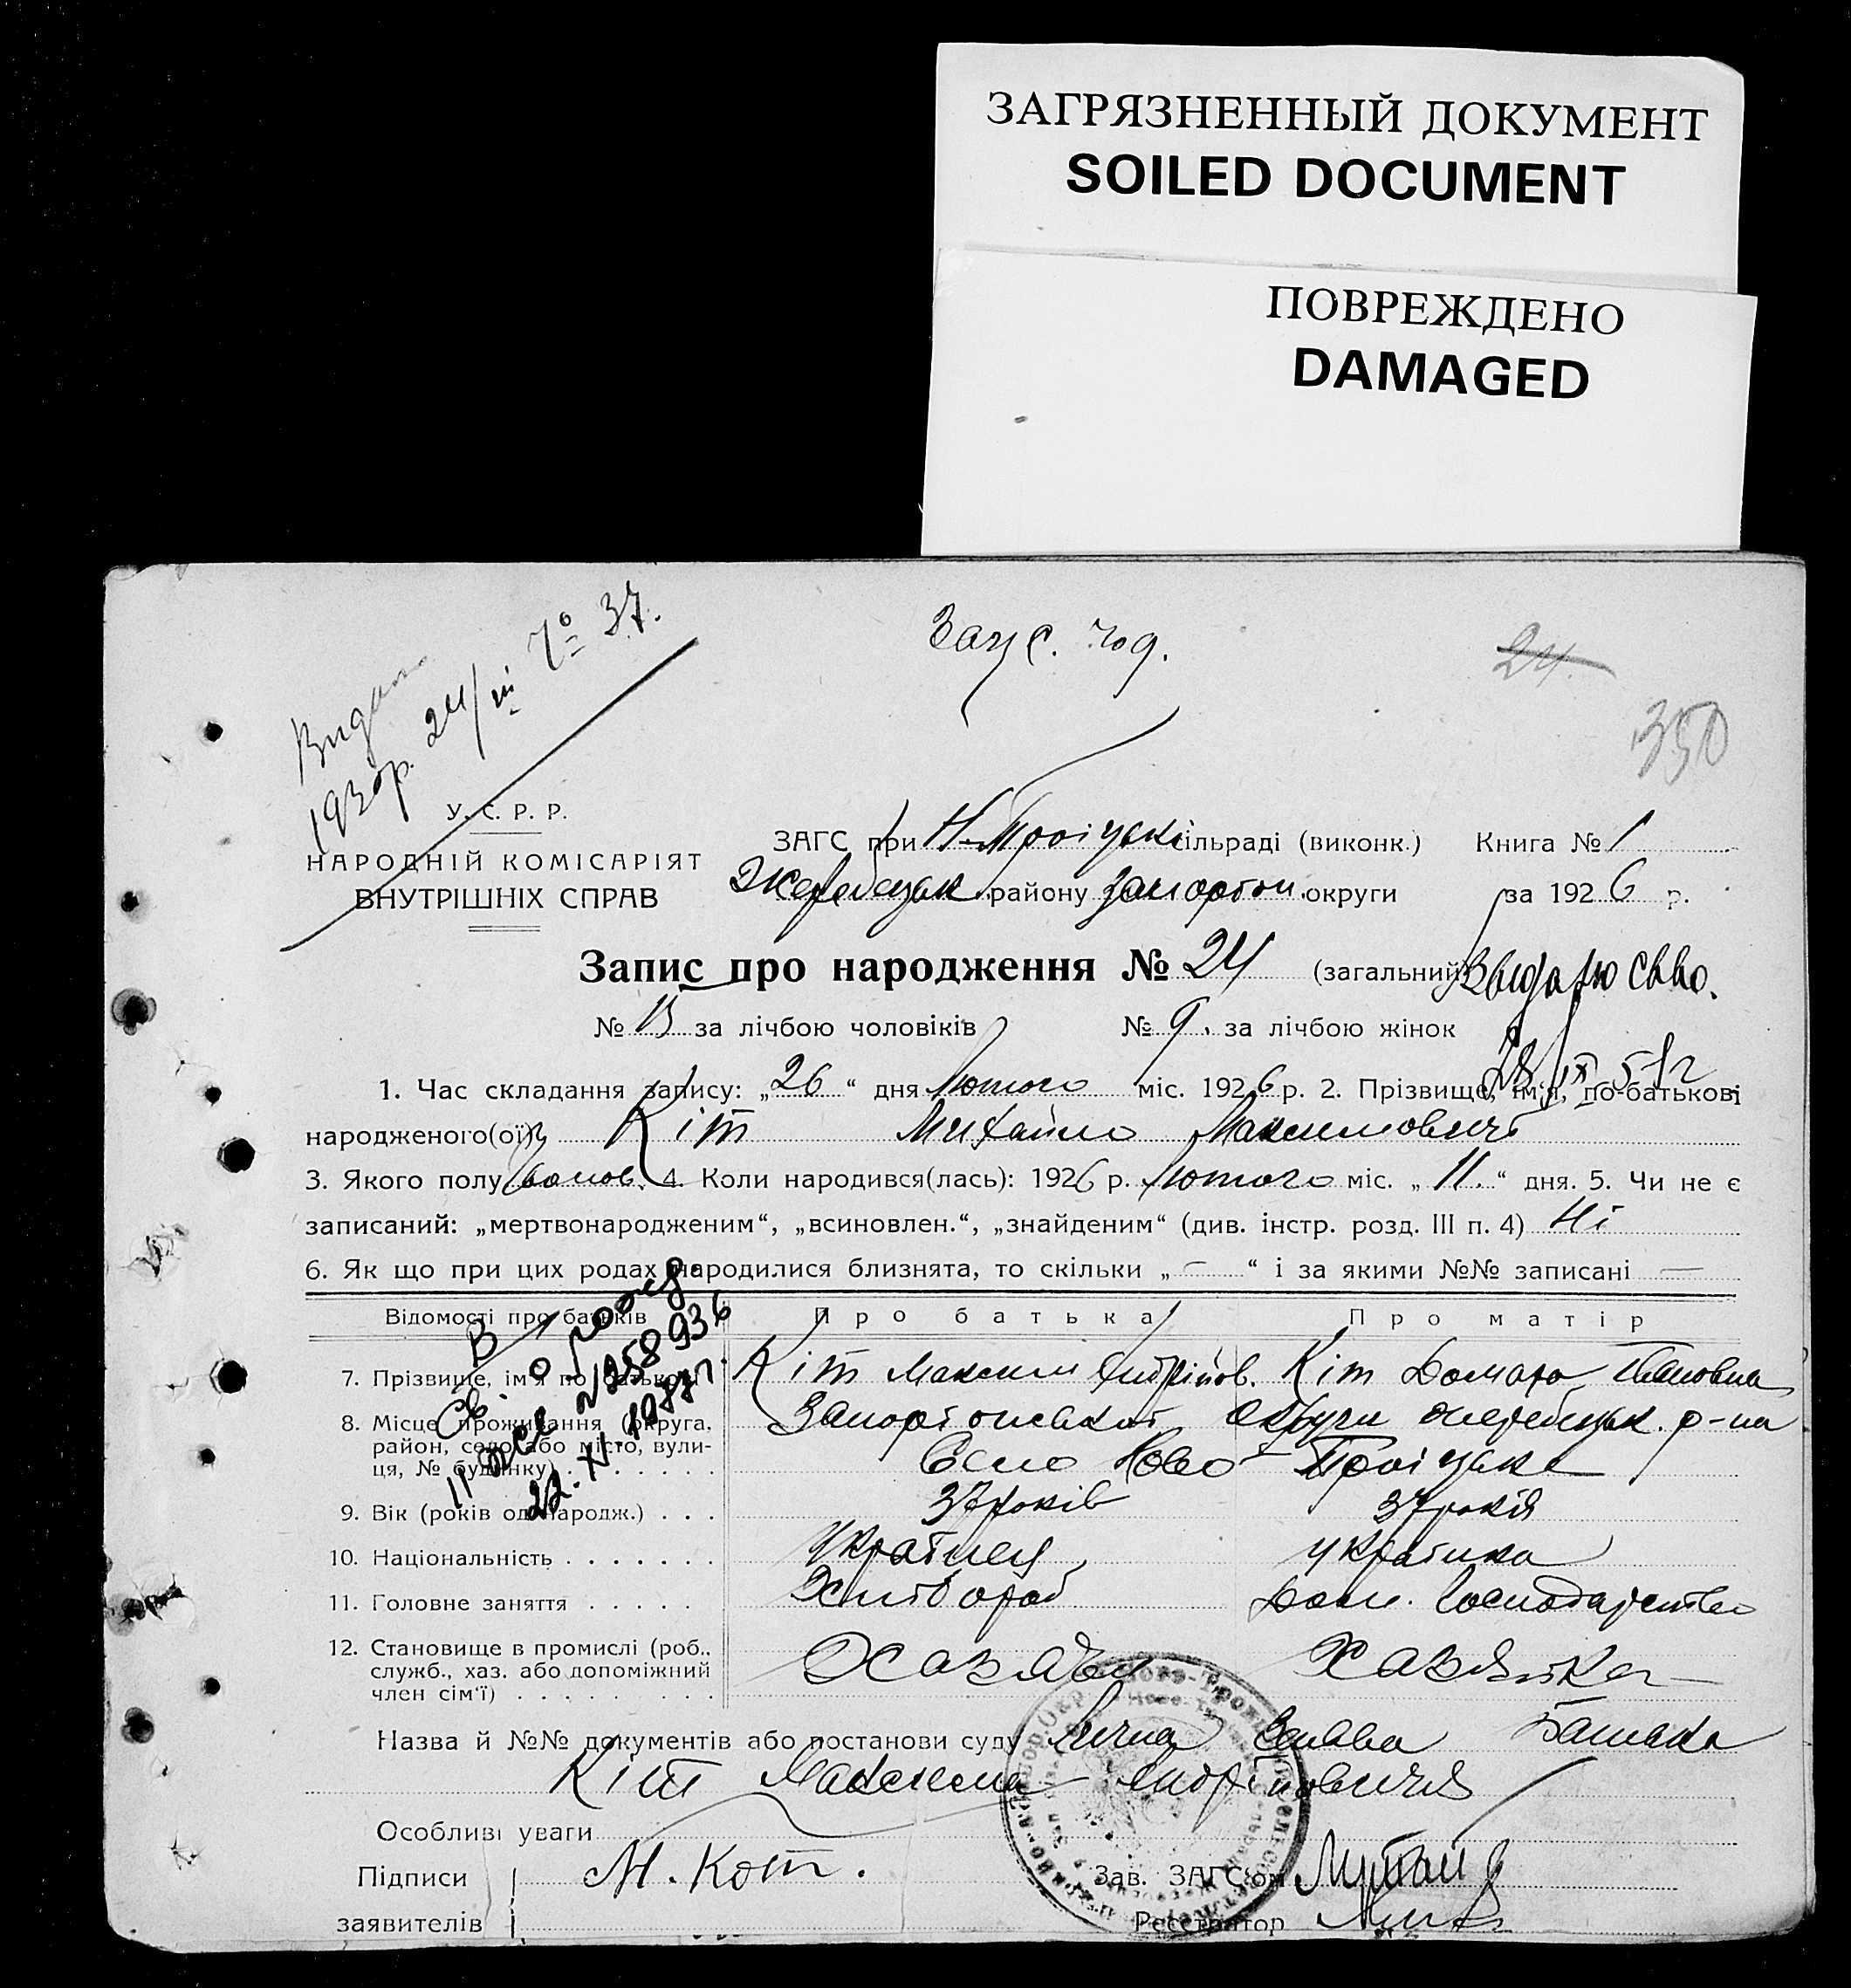 ЗАГРЯЗНЕННЫЙ ДОКУМЕНТ
SOILED DOCUMENT
ПОВРЕЖДЕНО
DAMAGED
24.
350
1930р. 24/III № 37.
У. С. Р. Р.
НАРОДНІЙ КОМІСАРІЯТ
ВНУТРІШНІХ СПРАВ
ЗАГС при Н-Троіцькі сільраді (виконк.) Книга № 1
Жеребецьк. району запоріжк. округи за 1926 р.
Запис про народження № 24 (загальний)
№ 15 за лічбою чоловіків № 9. за лічбою жінок
1. Час складання запису: „26“ дня Лютого міс. 1926 р. 2. Прізвище, ім'я, по-батькові
народженого(ої) Кіт Михайло Максимович
3. Якого полу чолов. 4. Коли народився(лась): 1926 р. Лютого міс. „11.“ дня. 5. Чи не є
записаний: „мертвонародженим“, „всиновлен.“, „знайденим“ (див. інстр. розд. III п. 4) Ні
6. Як що при цих родах народилися близнята, то скільки „—“ і за якими №№ записані —
Відомості про батьків Про батька Про матір
7. Прізвище, ім'я по батькові Кіт Максим Кіт Домаха Івановна
8. Місце проживання (округа, район, село або місто, вули- ця, № будинку) округи жеребецьк. р-на
Село Ново-Троіцьке
9. Вік (років од народж.) 37 років 37 років
10. Національність українец українка
11. Головне заняття Хлібороб Дом. Господарство
12. Становище в промислі (роб., служб., хаз. або допоміжний член сім'ї) Хазяїн Хазяйка
Назва й №№ документів або постанови суду Лична Заява Батька
Кіт Максима
Особливі уваги
Підписи М. Кот. Зав. ЗАГС'ом
заявителів Реєстратор